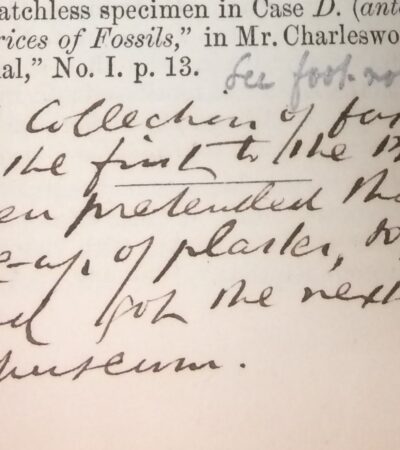 atchless specimen in Case D. (ant
rices of Fossils," in Mr. Charleswo
al," No. I. p. 13.
See foot no
Collection of fos
the first to the B
en pretended tha
e-up of plaster, to
got the next
museum.